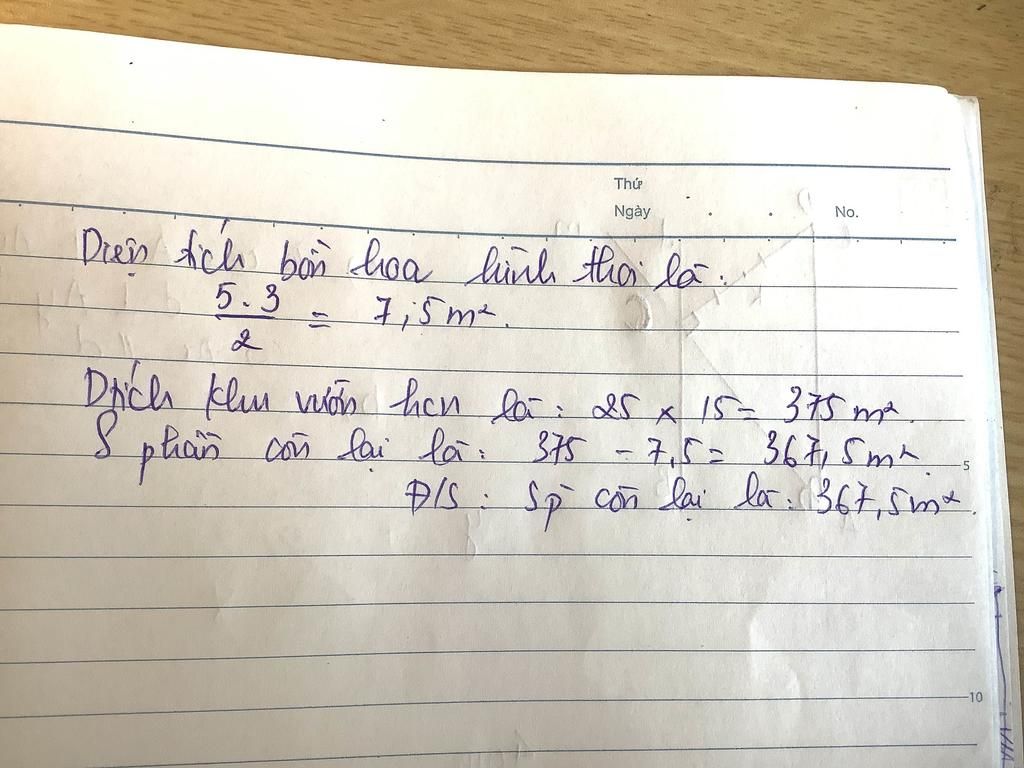 Thứ
Ngày . . No.
Diện tích bồn hoa hình thoi là:
5.3
2
= 7,5m².
Dtích khu vườn hcn là: 25 x 15 = 375m².
S phần còn lại là: 375 - 7,5 = 367,5m².
5
Đ/S: Sp còn lại là: 367,5m².
10